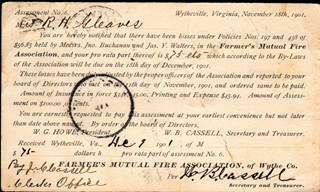 Assessment No. 6. Wytheville, Virginia, November 18th, 1901.
R. H. Cleaves
You are hereby notified that there have been losses under Policies Nos. 197 and 456 of
$56.83 held by Messrs. Jas. Buchanan and Jas. Y. Walters, in the Farmer's Mutual Fire
Association, and your pro rata part thereof is $ 75 cts which according to the By-Laws
of the Association will be due on the 18th day of December, 1901.
These losses have been adjusted by the proper officers of the Association and reported to your
board of Directors on the 11th day of November, 1901, and ordered same to be paid.
Amount of Insurance in force Printing and Expense $45.92. Amount of Assess-
ment on $100.00 cents.
You are earnestly requested to pay the assessment at your earliest convenience but not
later than date above named. By order of the board of Directors.
W. G. HOWE, President. W. B. CASSELL, Secretary and Treasurer.
Received Wytheville, Va., Dec 9 1901, of M
$ 75 dollars & pro rata part of assessment No. 6.
FARMER'S MUTUAL FIRE ASSOCIATION, of Wythe Co.
Clerks Office Per W B Cassell
Secretary and Treasurer.